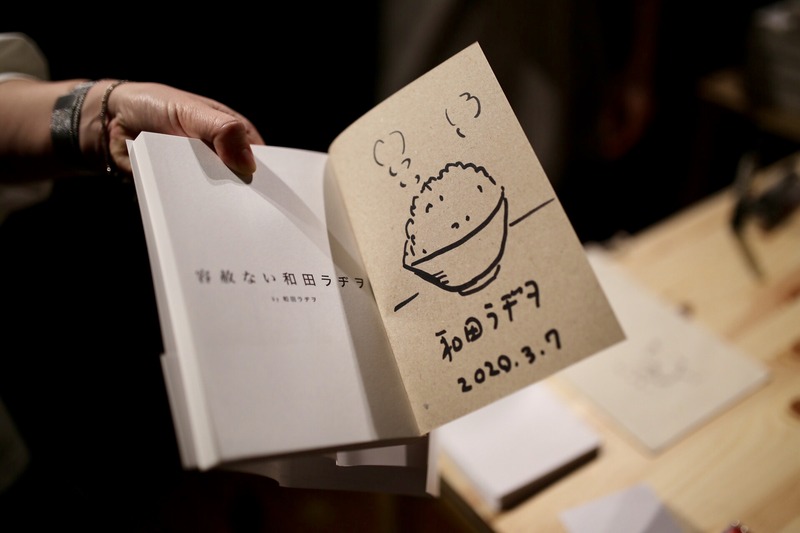 容赦ない和田ラヂヲ
by 和田ラヂヲ
和田ラヂヲ
2020.3.7